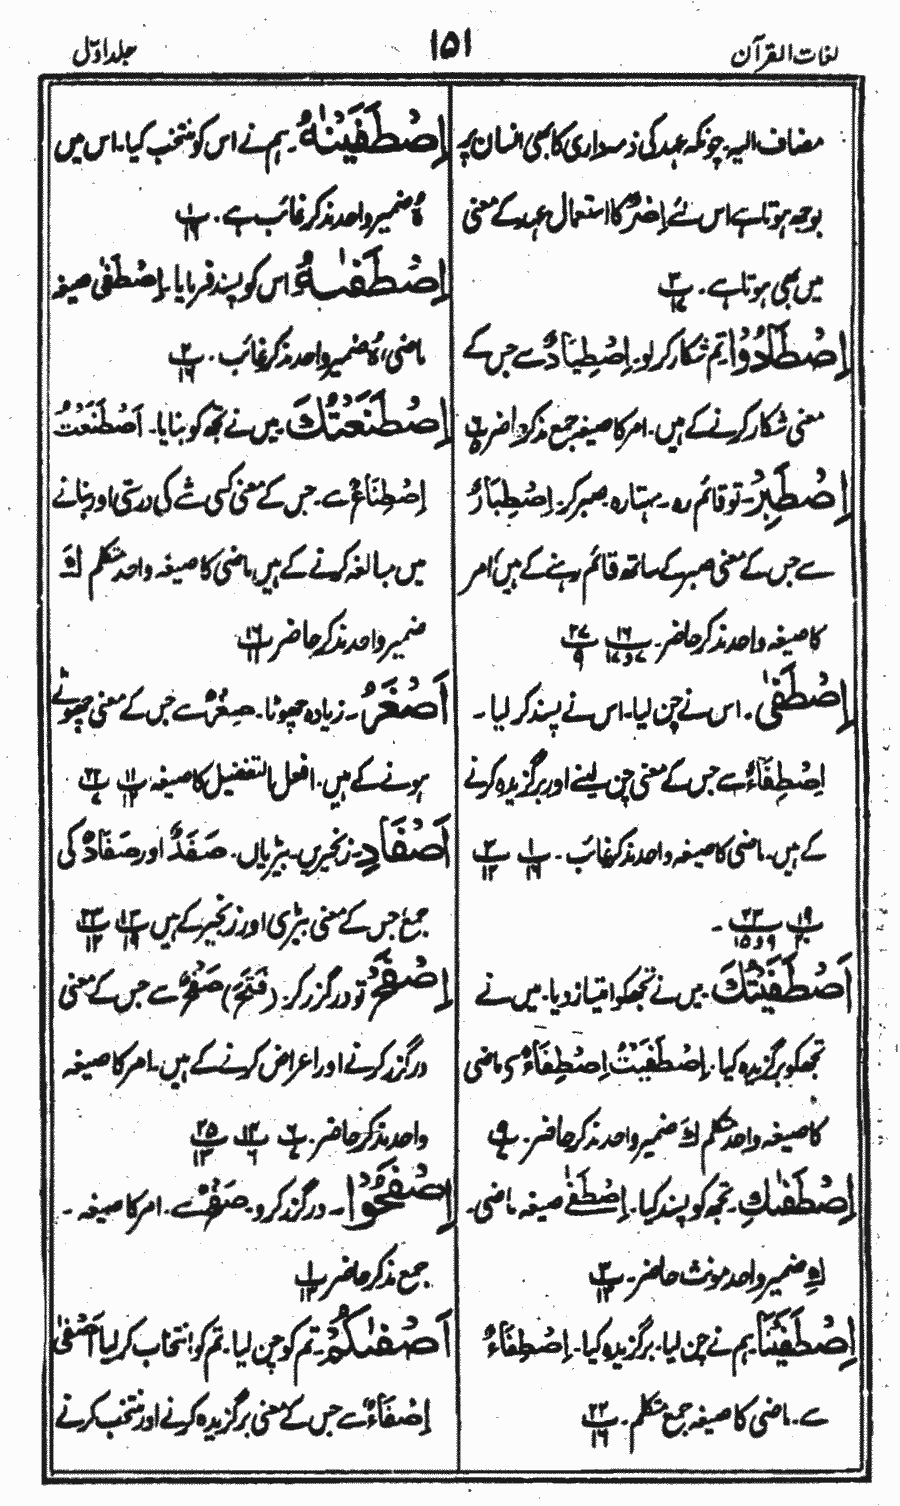 لغات القرآن
۱۵۱
جلد اوّل
مضاف الیہ۔ چونکہ عہد کی ذمہ داری کا بھی انسان پر
بوجھ ہوتا ہے اس لئے اِصْرٌ کا استعمال عہد کے معنی
میں بھی ہوتا ہے۔ ۳/۱۷
اِصْطَادُوْا تم شکار کر لو۔ اِصْطِیَادٌ سے جس کے
معنی شکار کرنے کے ہیں۔ امر کا صیغہ جمع مذکر حاضر ۶/۵
اِصْطَبِرْ۔ تو قائم رہ۔ سہتا رہ۔ صبر کر۔ اِصْطِبَارٌ
سے جس کے معنی صبر کے ساتھ قائم رہنے کے ہیں، امر
کا صیغہ واحد مذکر حاضر۔ ۱۶/۷ و ۱۷ ۲۷/۹
اِصْطَفٰی۔ اس نے چن لیا۔ اس نے پسند کر لیا۔
اِصْطِفَاءٌ سے جس کے معنی چن لینے اور برگزیدہ کرنے
کے ہیں۔ ماضی کا صیغہ واحد مذکر غائب۔ ۱/۱۶ ۳/۱۲
۱۹/۲۰ ۲۳/۹ و ۱۵۔
اِصْطَفَیْتُكَ۔ میں نے تجھ کو امتیاز دیا۔ میں نے
تجھ کو برگزیدہ کیا۔ اِصْطَفَیْتُ اِصْطِفَاءٌ سے ماضی
کا صیغہ واحد متکلم كَ ضمیر واحد مذکر حاضر۔ ۹/۷
اِصْطَفٰىكِ۔ تجھ کو پسند کیا۔ اِصْطَفٰی صیغہ ماضی۔
كِ ضمیر واحد مونث حاضر۔ ۳/۱۳
اِصْطَفَیْنَا۔ ہم نے چن لیا۔ برگزیدہ کیا۔ اِصْطِفَاءٌ
سے۔ ماضی کا صیغہ جمع متکلم۔ ۲۲/۱۶
اِصْطَفَیْنٰهُ۔ ہم نے اس کو منتخب کیا۔ اس میں
هُ ضمیر واحد مذکر غائب ہے۔ ۱/۱۶
اِصْطَفٰىهُ اس کو پسند فرمایا۔ اِصْطَفٰی صیغہ
ماضی، هُ ضمیر واحد مذکر غائب۔ ۲/۱۶
اِصْطَنَعْتُكَ۔ میں نے تجھ کو بنایا۔ اِصْطَنَعْتُ
اِصْطِنَاعٌ سے۔ جس کے معنی کسی شے کی درستی اور بنانے
میں مبالغہ کرنے کے ہیں، ماضی کا صیغہ واحد متکلم كَ
ضمیر واحد مذکر حاضر ۱۶/۱۱
اَصْغَرَ۔ زیادہ چھوٹا۔ صِغَرٌ سے جس کے معنی چھوٹے
ہونے کے ہیں۔ افعل التفضیل کا صیغہ ۱۱/۱۲ ۲۲/۷
اَصْفَادِ۔ زنجیریں۔ بیڑیاں۔ صَفَدٌ اور صَفَادٌ کی
جمع جس کے معنی بیڑی اور زنجیر کے ہیں ۱۳/۱۹ ۲۳/۱۲
اِصْفَحْ تو درگزر کر۔ (فَتَحَ) صَفْحٌ سے جس کے معنی
درگزر کرنے اور اعراض کرنے کے ہیں۔ امر کا صیغہ
واحد مذکر حاضر۔ ۶/۷ ۱۴/۶ ۲۵/۱۳
اِصْفَحُوْا۔ درگزر کرو۔ صَفْحٌ سے۔ امر کا صیغہ۔
جمع مذکر حاضر ۱/۱۳
اَصْفٰىكُمْ۔ تم کو چن لیا۔ تم کو انتخاب کر لیا اَصْفٰی
اِصْفَاءٌ سے جس کے معنی برگزیدہ کرنے اور منتخب کرنے